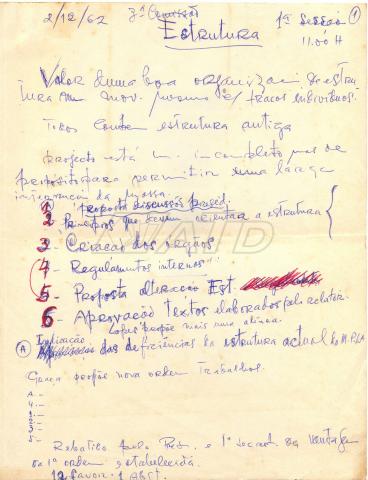 2/12/62 3ª Comissão 1ª Sessão 1
Estrutura 11.00 H
Valor duma boa organização de estru
tura num mov. mesmo c/ fracos individuos.
Todos contra estrutura antiga
projecto está m. incompleto mas de
proposito para permitir uma larga
da massa.
1 proposta discussão
2 Principios que devem orientar a estrutura
3 - Criação dos órgãos
4 - Regulamentos internos
5 - Proposta alteração Est.
6 - Aprovação textos elaborados pelo relator.
Lopes propõe mais uma alinea.
A Indicação das deficiências da estrutura actual do M.P.L.A
Graça propõe nova ordem Trabalhos.
A -
4 -
1 -
2 -
3 -
5 -
Rebatida pelo Pres. e 1º secret. da vantagem
da 1ª ordem estabelecida.
12 favor - 1 Abst.